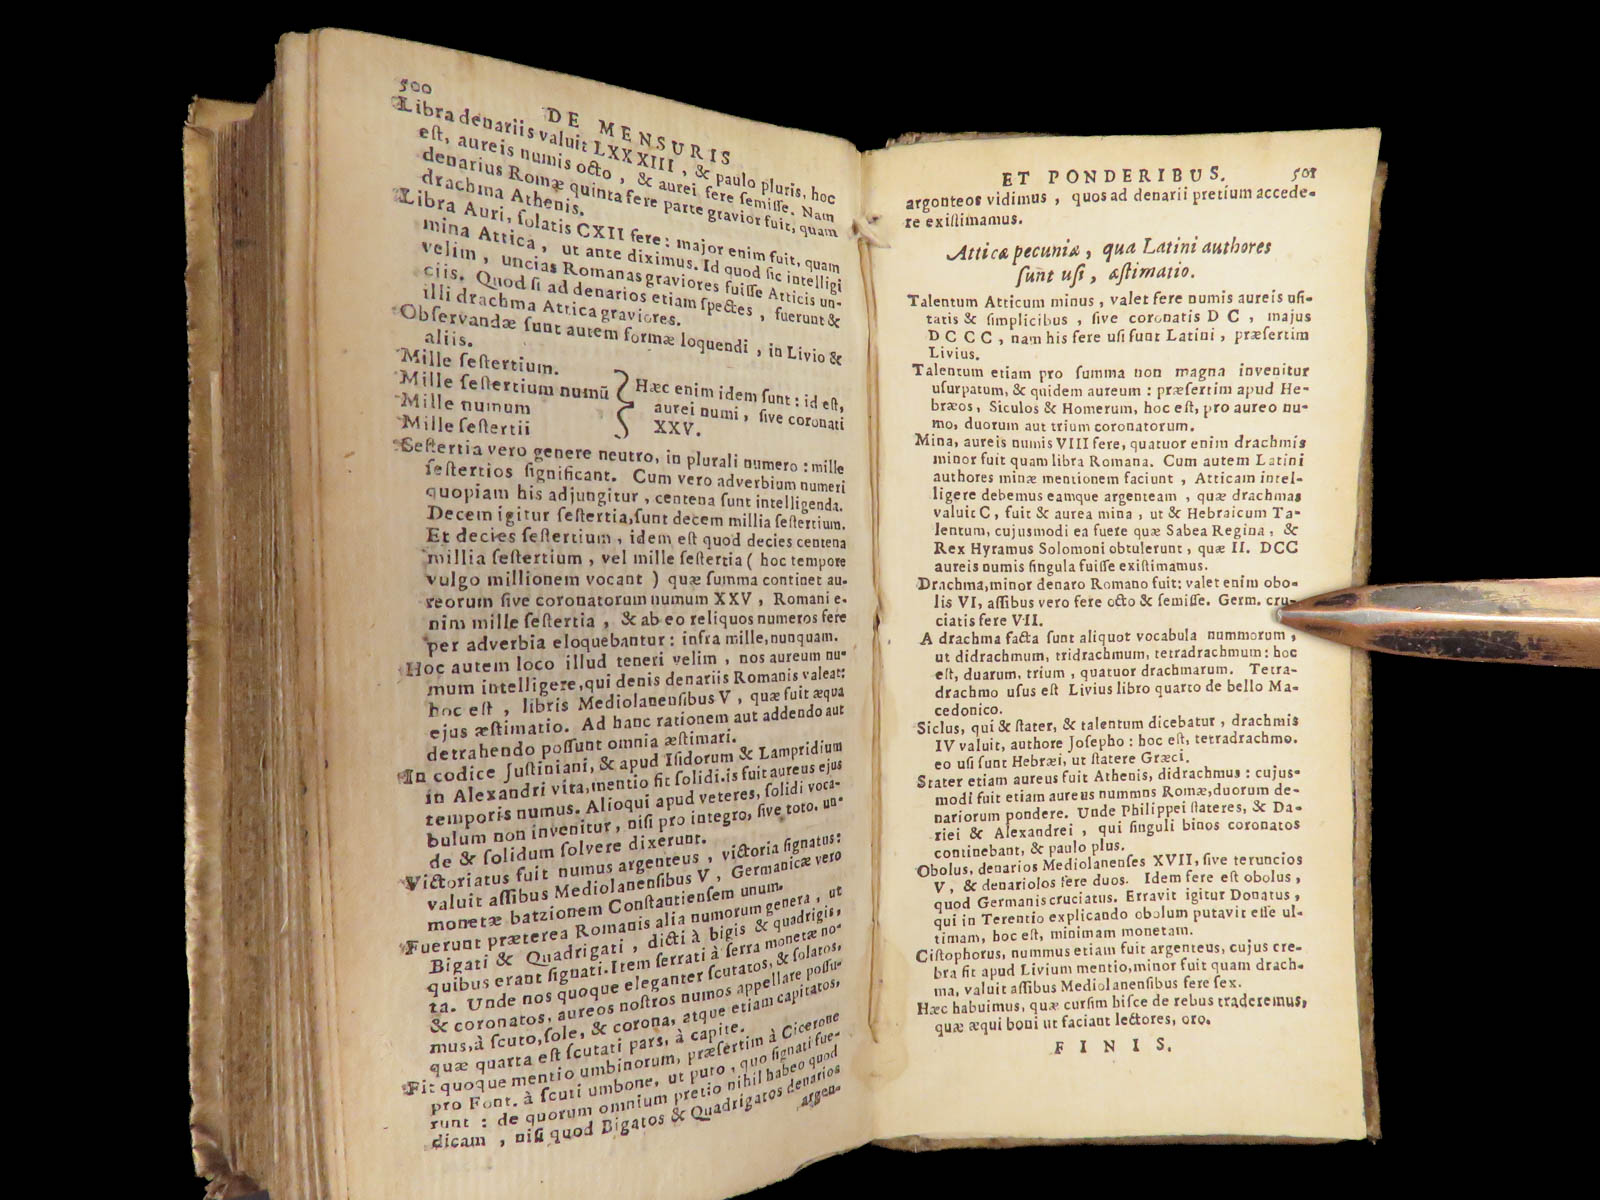 500
DE MENSURIS
Libra denariis valuit LXXXIII, & paulo pluris, hoc
eſt, aureis numis octo, & aurei fere ſemiſſe. Nam
denarius Romæ quinta fere parte gravior fuit, quam
drachma Athenis.
Libra Auri, ſolatis CXII fere: major enim fuit, quam
mina Attica, ut ante diximus. Id quod ſic intelligi
velim, uncias Romanas graviores fuiſſe Atticis un-
ciis. Quod ſi ad denarios etiam ſpectes, fuerunt &
illi drachma Attica graviores.
Obſervandæ ſunt autem formæ loquendi, in Livio &
aliis.
Mille ſeſtertium.
Mille ſeſtertium numū
Mille numum
Mille ſeſtertii
Hæc enim idem ſunt: id eſt,
aurei numi, ſive coronati
XXV.
Seſtertia vero genere neutro, in plurali numero: mille
ſeſtertios ſignificant. Cum vero adverbium numeri
quopiam his adjungitur, centena ſunt intelligenda.
Decem igitur ſeſtertia, ſunt decem millia ſeſtertium.
Et decies ſeſtertium, idem eſt quod decies centena
millia ſeſtertium, vel mille ſeſtertia ( hoc tempore
vulgo millionem vocant ) quæ ſumma continet au-
reorum ſive coronatorum numum XXV, Romani e-
nim mille ſeſtertia, & ab eo reliquos numeros fere
per adverbia eloquebantur: infra mille, nunquam.
Hoc autem loco illud teneri velim, nos aureum nu-
mum intelligere, qui denis denariis Romanis valeat:
hoc eſt, libris Mediolanenſibus V, quæ fuit æqua
ejus æſtimatio. Ad hanc rationem aut addendo aut
detrahendo poſſunt omnia æſtimari.
In codice Juſtiniani, & apud Iſidorum & Lampridium
in Alexandri vita, mentio fit ſolidi. is fuit aureus ejus
temporis numus. Alioqui apud veteres, ſolidi voca-
bulum non invenitur, niſi pro integro, ſive toto. un-
de & ſolidum ſolvere dixerunt.
Victoriatus fuit numus argenteus, victoria ſignatus:
valuit aſſibus Mediolanenſibus V, Germanicæ vero
monetæ batzionem Conſtantienſem unum.
Fuerunt præterea Romanis alia numorum genera, ut
Bigati & Quadrigati, dicti à bigis & quadrigis,
quibus erant ſignati. Item ſerrati à ſerra monetæ no-
ta. Unde nos quoque eleganter ſcutatos, & ſolatos,
& coronatos, aureos noſtros numos appellare poſſu-
mus, à ſcuto, ſole, & corona, atque etiam capitatos,
quæ quarta eſt ſcutati pars, à capite.
Fit quoque mentio umbinorum, præſertim à Cicerone
pro Font. à ſcuti umbone, ut puto, quo ſignati fue-
runt: de quorum omnium pretio nihil habeo quod
dicam, niſi quod Bigatos & Quadrigatos denarios
argen-
ET PONDERIBUS. 501
argonteos vidimus, quos ad denarii pretium accede-
re exiſtimamus.
Atticæ pecuniæ, qua Latini authores
ſunt uſi, æſtimatio.
Talentum Atticum minus, valet fere numis aureis uſi-
tatis & ſimplicibus, ſive coronatis D C, majus
D C C C, nam his fere uſi ſunt Latini, præſertim
Livius.
Talentum etiam pro ſumma non magna invenitur
uſurpatum, & quidem aureum: præſertim apud He-
bræos, Siculos & Homerum, hoc eſt, pro aureo nu-
mo, duorum aut trium coronatorum.
Mina, aureis numis VIII fere, quatuor enim drachmis
minor fuit quam libra Romana. Cum autem Latini
authores minæ mentionem faciunt, Atticam intel-
ligere debemus eamque argenteam, quæ drachmas
valuit C, fuit & aurea mina, ut & Hebraicum Ta-
lentum, cujusmodi ea fuere quæ Sabea Regina, &
Rex Hyramus Solomoni obtulerunt, quæ II. DCC
aureis numis ſingula fuiſſe exiſtimamus.
Drachma, minor denaro Romano fuit: valet enim obo-
lis VI, aſſibus vero fere octo & ſemiſſe. Germ. cru-
ciatis fere VII.
A drachma facta ſunt aliquot vocabula nummorum,
ut didrachmum, tridrachmum, tetradrachmum: hoc
eſt, duarum, trium, quatuor drachmarum. Tetra-
drachmo uſus eſt Livius libro quarto de bello Ma-
cedonico.
Siclus, qui & ſtater, & talentum dicebatur, drachmis
IV valuit, authore Joſepho: hoc eſt, tetradrachmo.
eo uſi ſunt Hebræi, ut ſtatere Græci.
Stater etiam aureus fuit Athenis, didrachmus: cujus-
modi fuit etiam aureus nummus Romæ, duorum de-
nariorum pondere. Unde Philippei ſtateres, & Da-
riei & Alexandrei, qui ſinguli binos coronatos
continebant, & paulo plus.
Obolus, denarios Mediolanenſes XVII, ſive teruncios
V, & denariolos fere duos. Idem fere eſt obolus,
quod Germanis cruciatus. Erravit igitur Donatus,
qui in Terentio explicando obolum putavit eſſe ul-
timam, hoc eſt, minimam monetam.
Ciſtophorus, nummus etiam fuit argenteus, cujus cre-
bra fit apud Livium mentio, minor fuit quam drach-
ma, valuit aſſibus Mediolanenſibus fere ſex.
Hæc habuimus, quæ curſim hiſce de rebus traderemus,
quæ æqui boni ut faciant lectores, oro.
F I N I S.